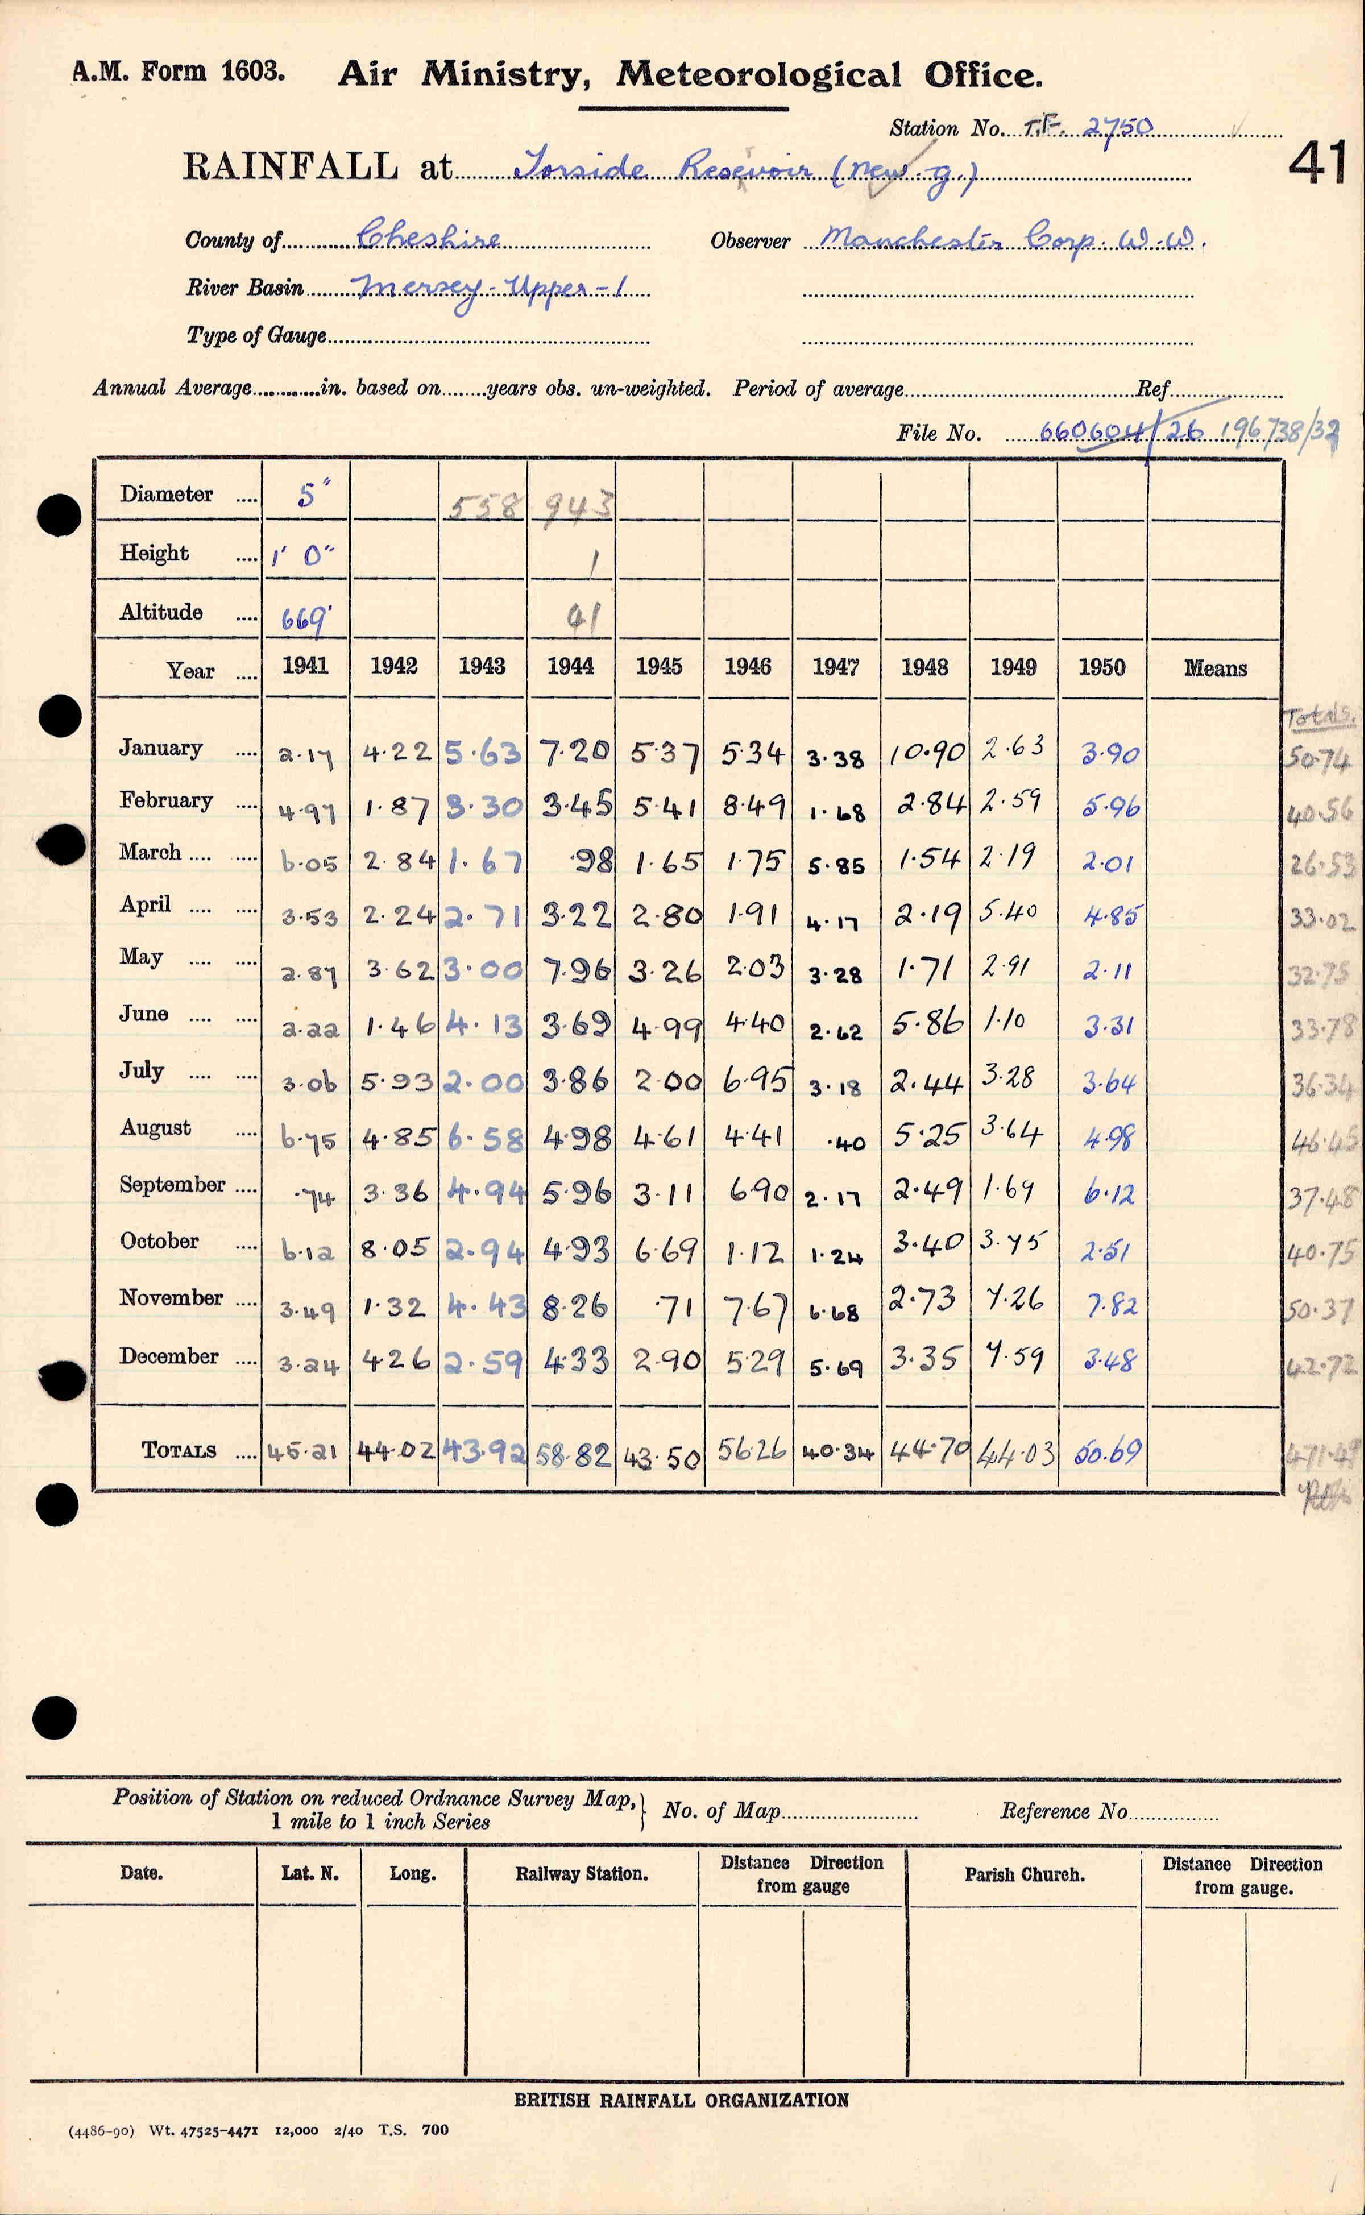 A.M. Form 1603. Air Ministry, Meteorological Office.
Station No. T.F. 2750
41
RAINFALL at Torside Resevoir (new g.)
County of Cheshire Observer Manchester Corp. W.W.
River Basin Mersey-Upper-1
Type of Gauge
Annual Average in. based on years obs. un-weighted. Period of average Ref.
File No. 660604/26 196738/32
Diameter 5" 558 943
Height 1' 0" 1
Altitude 669' 41
Year 1941 1942 1943 1944 1945 1946 1947 1948 1949 1950 Means
Totals.
January 2.17 4.22 5.63 7.20 5.37 5.34 3.38 10.90 2.63 3.90 50.74
February 4.97 1.87 3.30 3.45 5.41 8.49 1.68 2.84 2.59 5.96 40.56
March 6.05 2.84 1.67 .98 1.65 1.75 5.85 1.54 2.19 2.01 26.53
April 3.53 2.24 2.71 3.22 2.80 1.91 4.17 2.19 5.40 4.85 33.02
May 2.87 3.62 3.00 7.96 3.26 2.03 3.28 1.71 2.91 2.11 32.75
June 2.22 1.46 4.13 3.69 4.99 4.40 2.62 5.86 1.10 3.31 33.78
July 3.06 5.93 2.00 3.86 2.00 6.95 3.18 2.44 3.28 3.64 36.34
August 6.75 4.85 6.58 4.98 4.61 4.41 .40 5.25 3.64 4.98 46.45
September .74 3.36 4.94 5.96 3.11 6.90 2.17 2.49 1.69 6.12 37.48
October 6.12 8.05 2.94 4.93 6.69 1.12 1.24 3.40 3.75 2.51 40.75
November 3.49 1.32 4.43 8.26 .71 7.67 6.68 2.73 7.26 7.82 50.37
December 3.24 4.26 2.59 4.33 2.90 5.29 5.69 3.35 7.59 3.48 42.72
TOTALS 45.21 44.02 43.92 58.82 43.50 56.26 40.34 44.70 44.03 50.69 471.49
Position of Station on reduced Ordnance Survey Map, 1 mile to 1 inch Series } No. of Map Reference No.
Date. Lat. N. Long. Railway Station. Distance from gauge Direction Parish Church. Distance Direction from gauge.
BRITISH RAINFALL ORGANIZATION
(4486-90) Wt. 47525-4471 12,000 2/40 T.S. 700